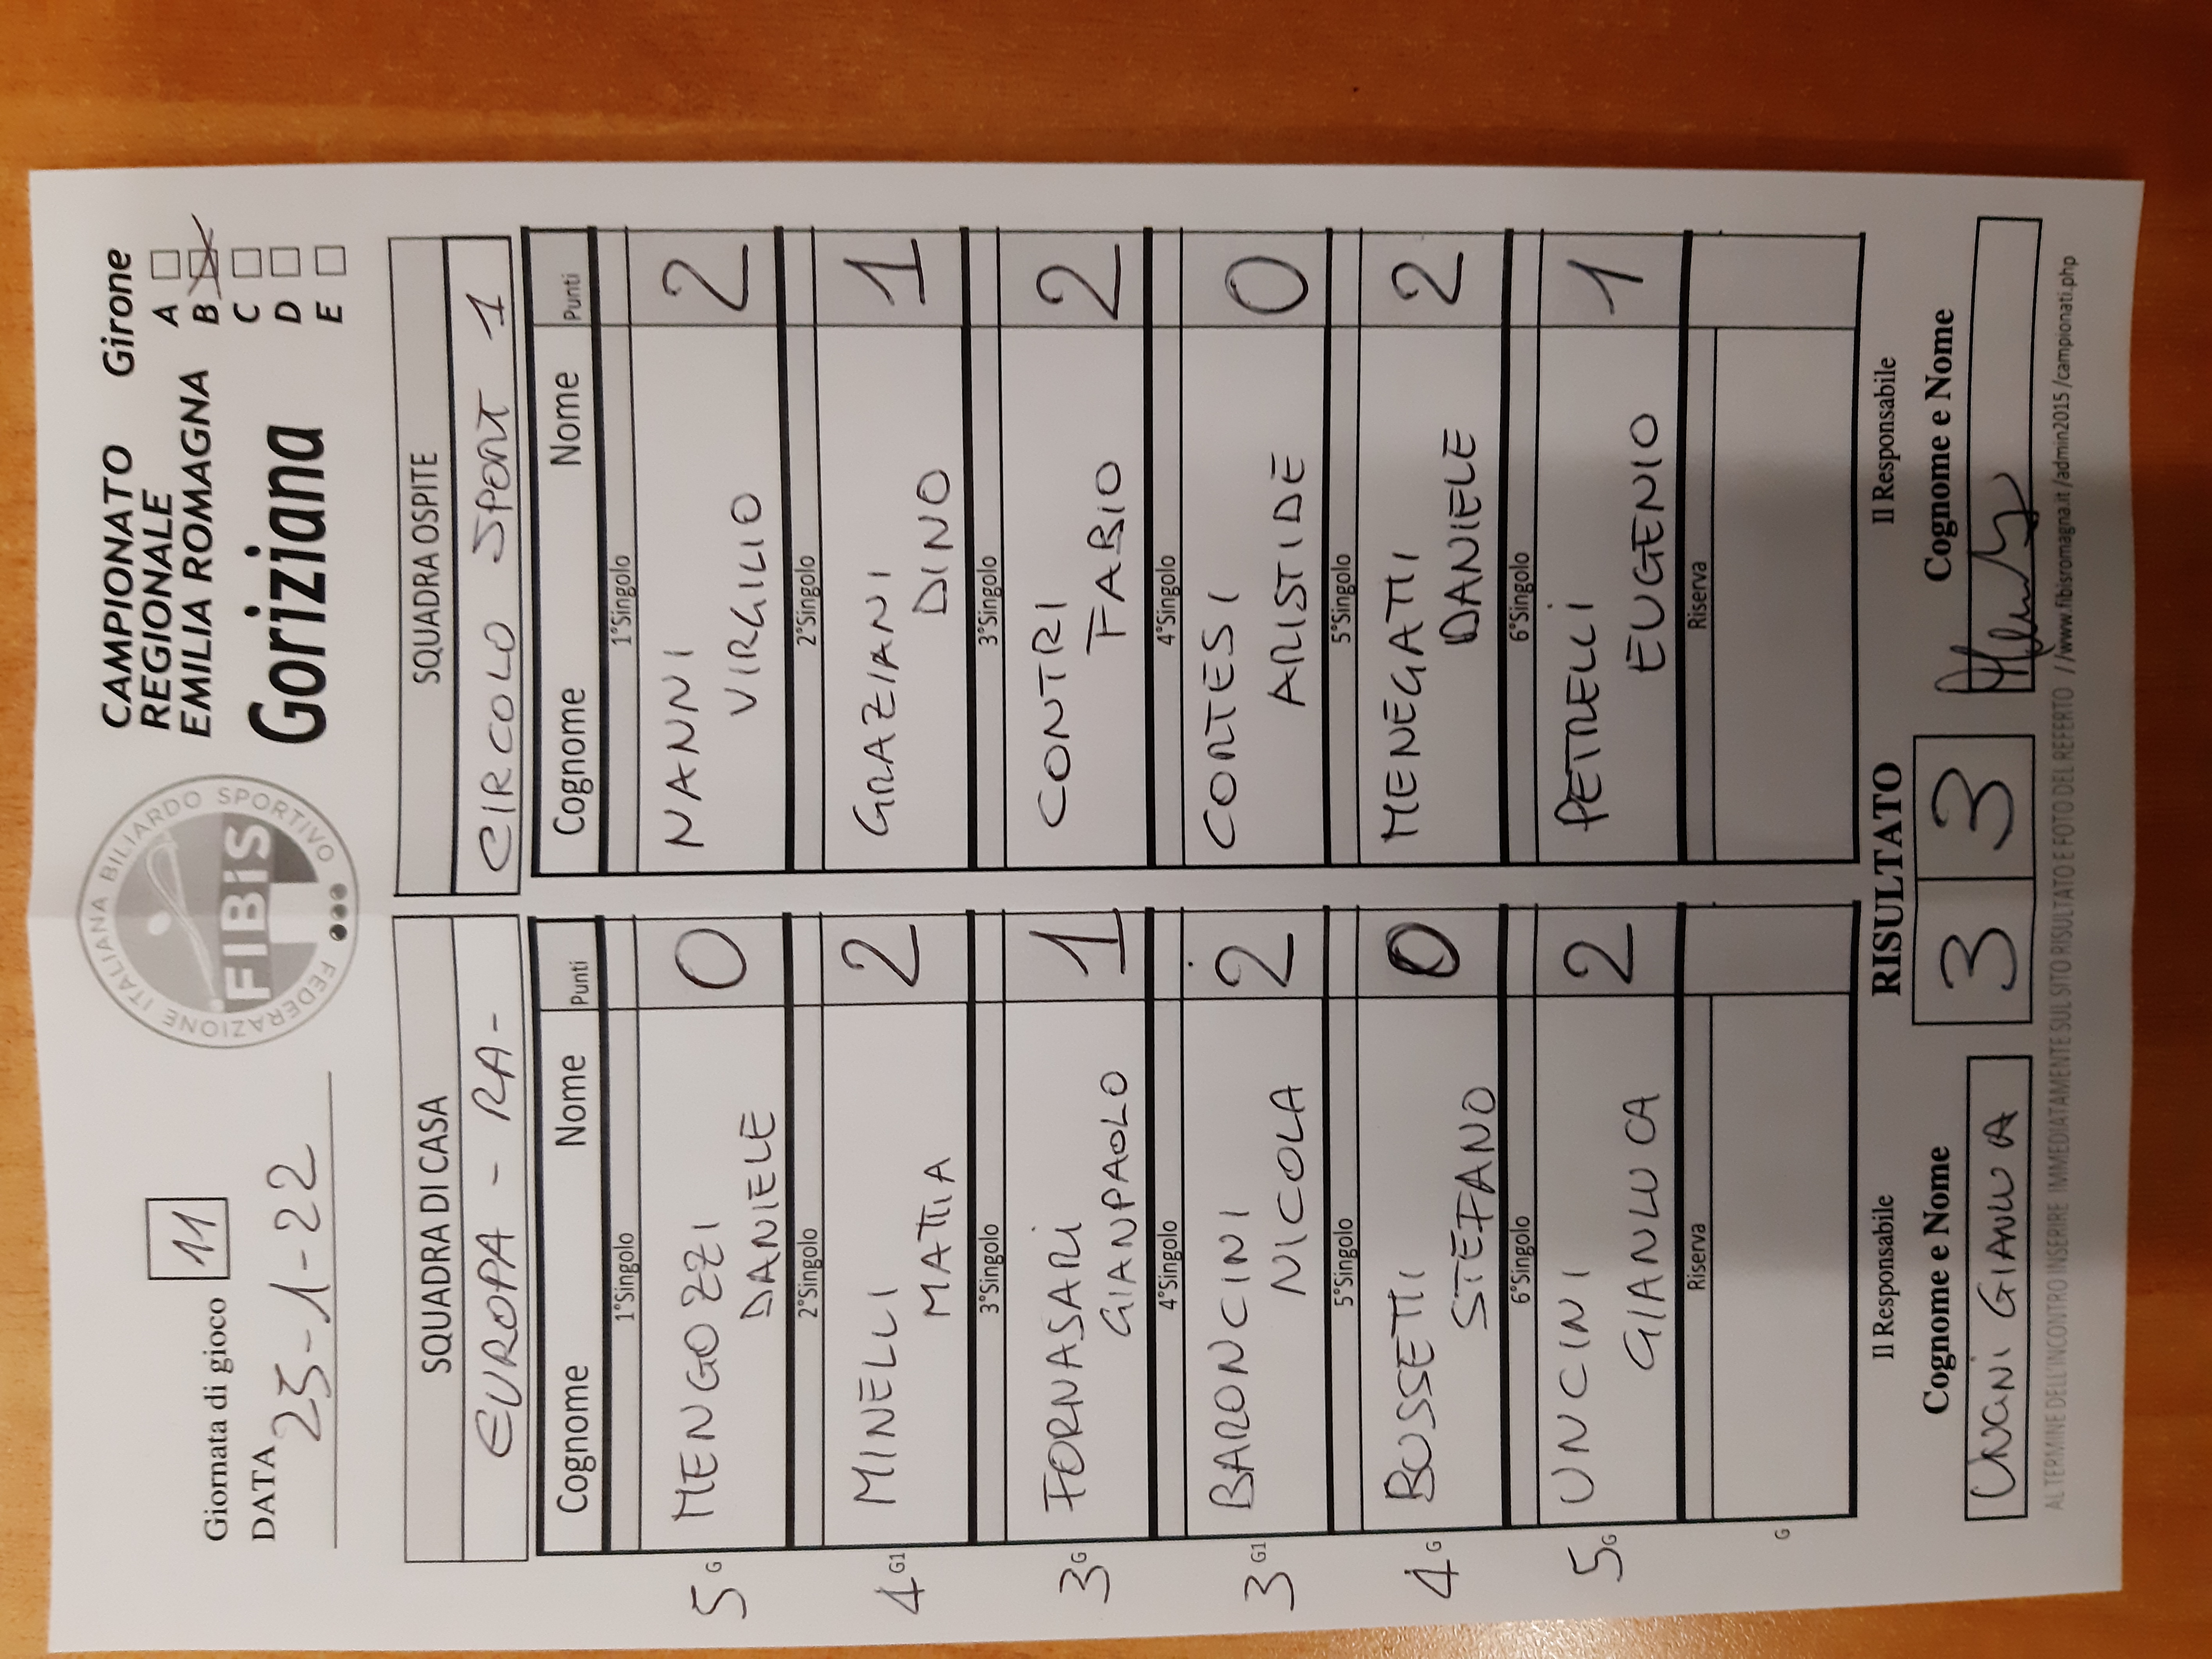 Giornata di gioco 11
DATA 25-1-22
FEDERAZIONE ITALIANA BILIARDO SPORTIVO
FIBiS
CAMPIONATO
REGIONALE
EMILIA ROMAGNA
Goriziana
Girone
A
B
C
D
E
SQUADRA DI CASA
EUROPA - RA-
Cognome Nome Punti
1°Singolo
5 G MENGOZZI DANIELE 0
2°Singolo
4 G1 MINELLI MATTIA 2
3°Singolo
3 G FORNASARI GIANPAOLO 1
4°Singolo
3 G1 BARONCINI NICOLA 2
5°Singolo
4 G BUSSETTI STEFANO 0
6°Singolo
5 G UNCINI GIANLUCA 2
Riserva
G
SQUADRA OSPITE
CIRCOLO SPORT 1
Cognome Nome Punti
1°Singolo
NANNI VIRGILIO 2
2°Singolo
GRAZIANI DINO 1
3°Singolo
CONTRI FABIO 2
4°Singolo
CORTESI ARISTIDE 0
5°Singolo
MENEGATTI DANIELE 2
6°Singolo
PETRELLI EUGENIO 1
Riserva
Il Responsabile
Cognome e Nome
UNCINI GIANLUCA
RISULTATO
3 3
Il Responsabile
Cognome e Nome
AL TERMINE DELL'INCONTRO INSERIRE IMMEDIATAMENTE SUL SITO RISULTATO E FOTO DEL REFERTO //www.fibisromagna.it/admin2015/campionati.php